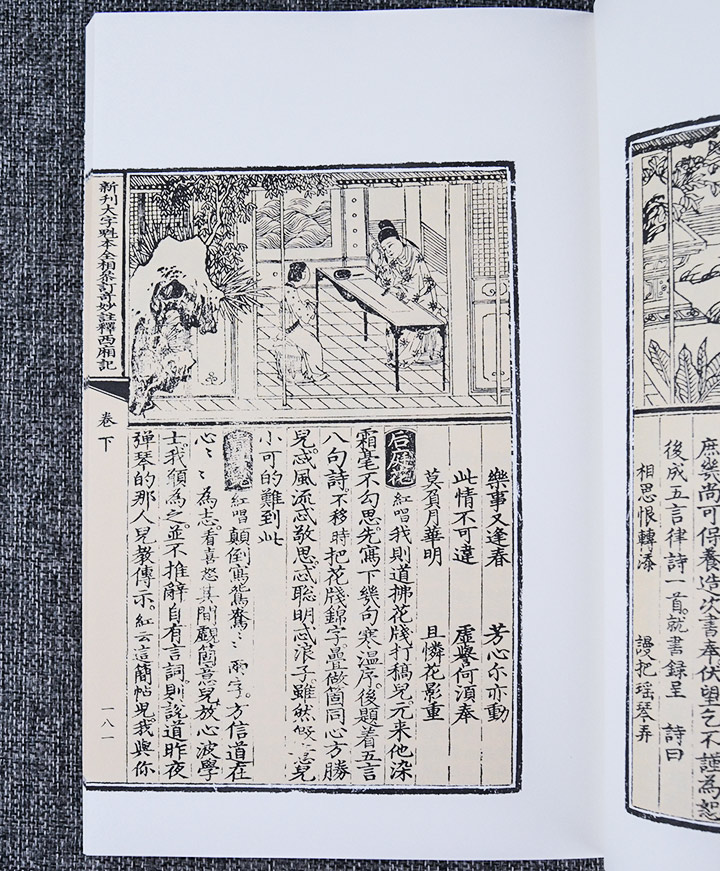 庶幾尚可保養造次書奉伏望乞不謹為恕
後成五言律詩一首。就書録呈 詩曰
相思恨轉添 謾把瑶琴弄
樂事又逢春 芳心尔亦動
此情不可違 虛譽何須奉
莫負月華明 且憐花影重
后庭花 紅唱我則道拂花牋打稿兒。元來他染
霜毫不勾思。先寫下幾句寒温序。後題着五言
八句詩。不移時把花牋錦字。疊做箇同心方勝
兒。忒風流忒敬思。忒聰明忒浪子。雖然是意兒
小可的難到此
紅唱顛倒寫鴛鴦〻〻兩字。方信道在
心〻〻為志。看喜怒其間覷箇意兒。放心波學
士。我願為之。並不推辭。自有言詞。則說道昨夜
彈琴的那人兒教傳示。紅云這簡帖兒。我與你
新刊大字魁本全相參訂奇妙註釋西廂記
卷下
一八一